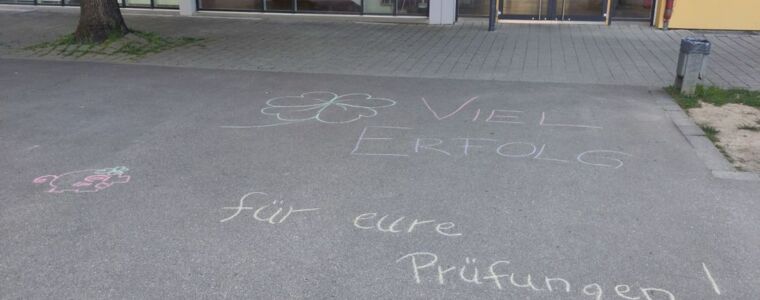 VIEL
ERFOLG
für eure
Prüfungen!